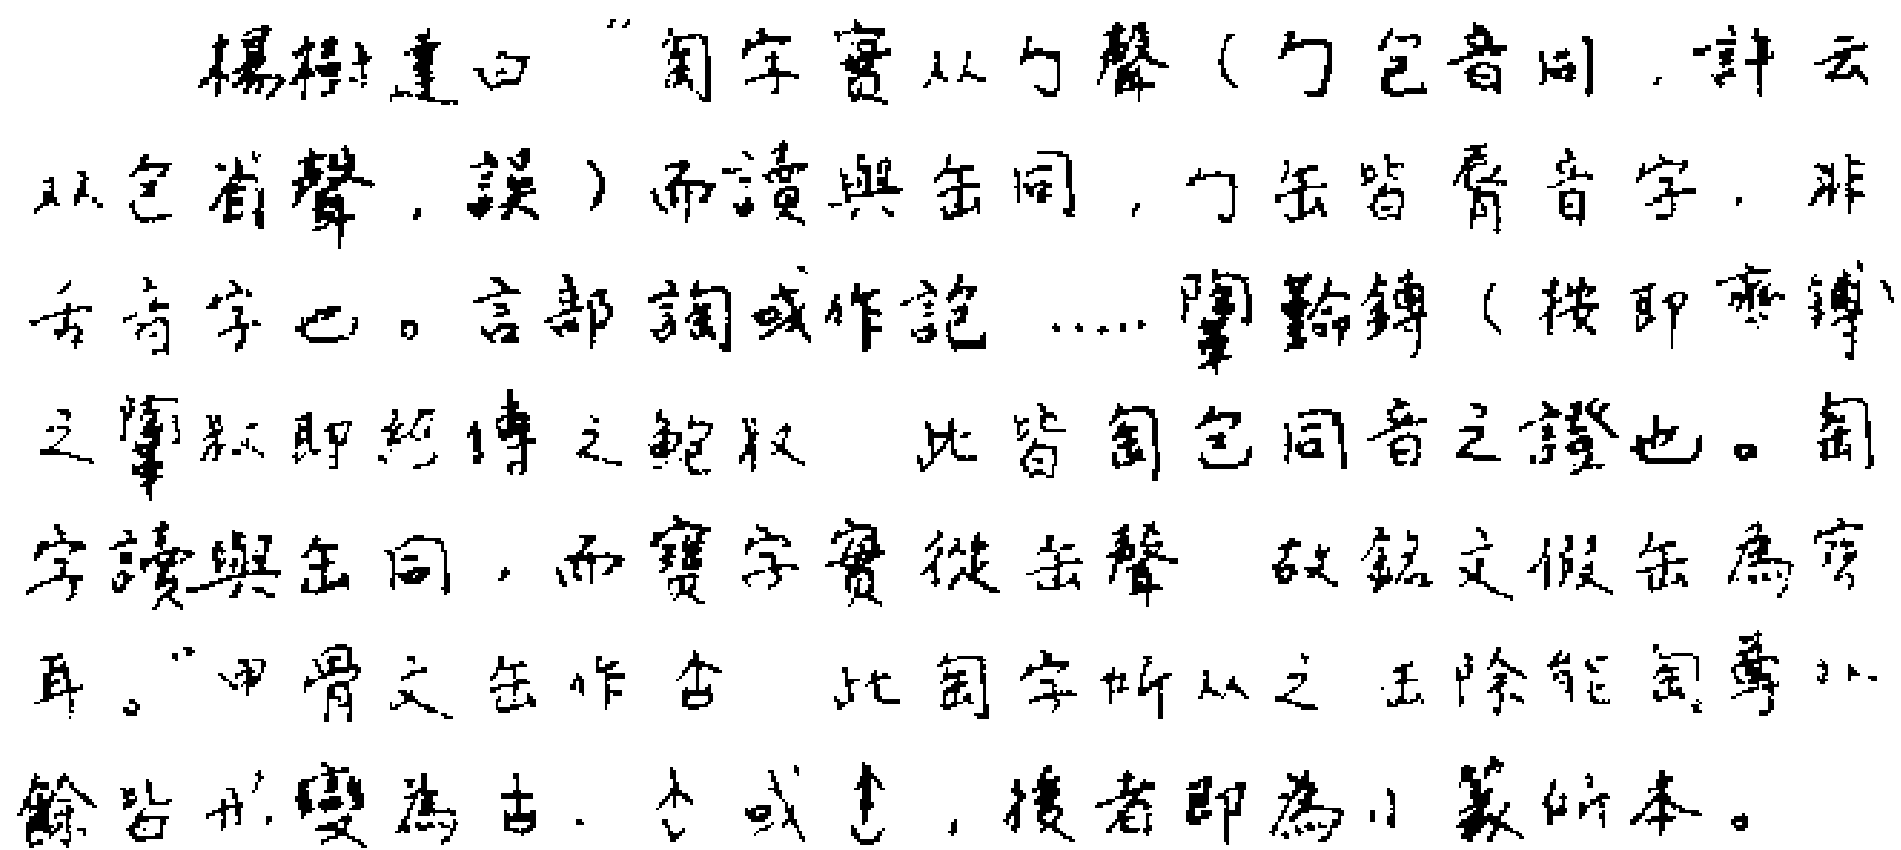 楊樹達曰“匋字實从勹聲（勹包音同，許云
从包省聲，誤）而讀與缶同，勹缶皆脣音字，非
舌音字也。言部詾或作詑……䩒鎛（按即齊鎛
之叔即經傳之鮑叔 此皆匋包同音之證也。匋
字讀與缶同，而寶字實從缶聲 故銘文假缶為寶
耳。”甲骨文缶作 此匋字所从之缶除能匋尊外
餘皆形變為古、或，後者即為小篆所本。